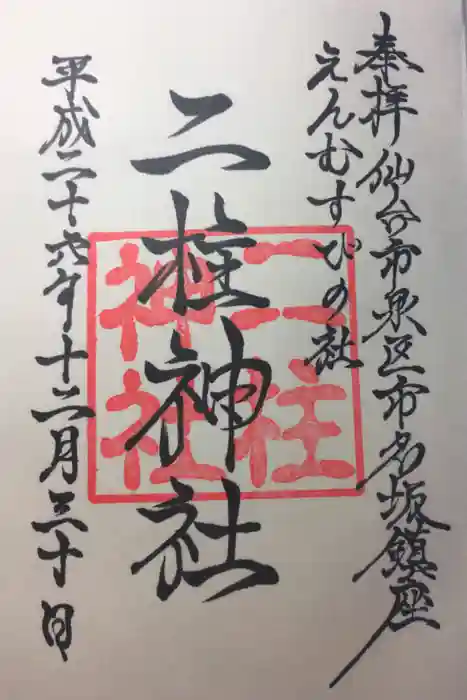 奉拝 仙台市泉区市名坂鎮座
えんむすびの社
二柱神社
二柱
神社
平成二十六年十二月三十日